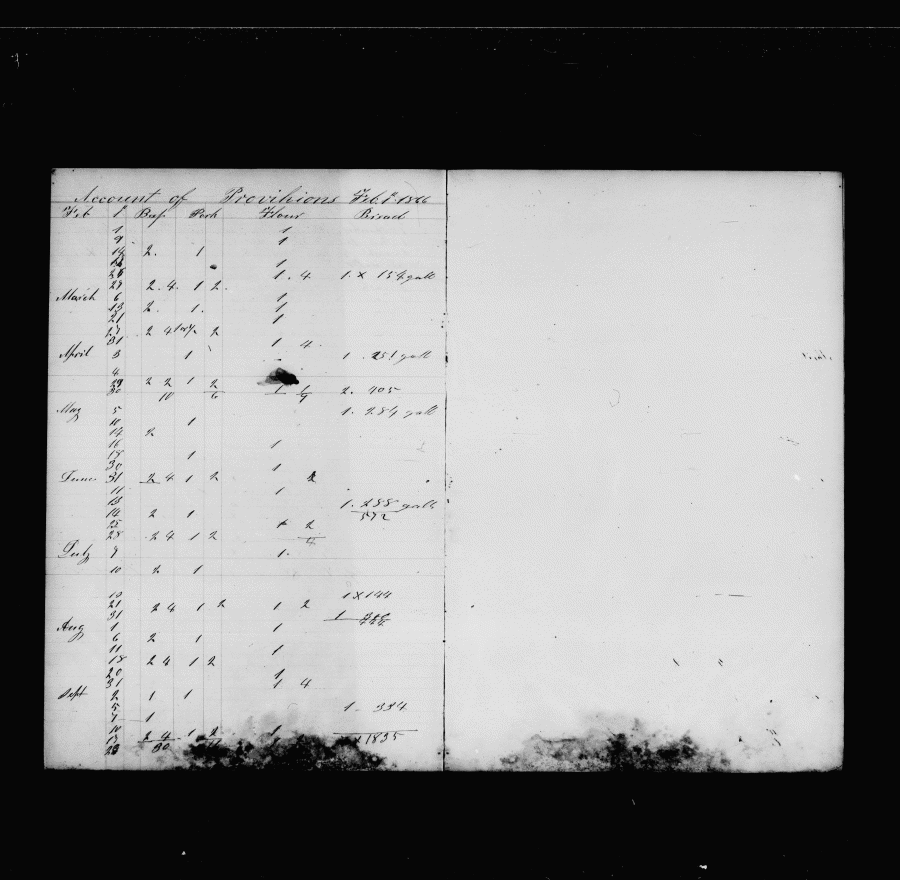 Account of Provihions Feb. 1st 1866
Feb 1st Beef Pork Flour Bread
1 1
9 1
14 2. 1
1
28 1. 4 1 x 154 galls
29 2. 4. 1 2.
March 6 1
13 2. 1. 1
21 1
27 2 4 2
31 1 4.
April 3 1 1 . 251 gall
4
29 2 2 1 2
30 10 6 1 9 2. 405
May 5 1. 284 gall
10 1
14 2
16 1
18 1
30 1
June 31 2 4 1 2 2
11 1
13 1. 288 galls
14 2 1 572
25 2
28 2 4 1 2 4
July 9 1.
10 2 1
10 1 x 144
21 2 4 1 2 1 2
31 1
Aug 1 1
6 2 1
11 1
18 2 4 1 2
20 1
31 1 4
Sept 2 1 1
5 1 - 334
7 1
10 1
17 2 4 1 2 x 1835
23 30